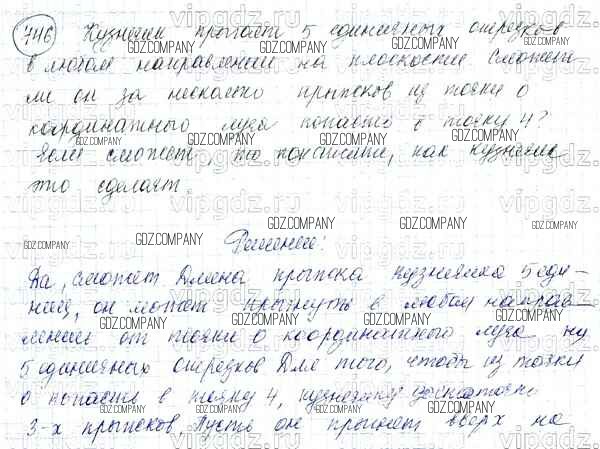 746 Кузнечик прыгает 5 единичных отрезков
в любом направлении на плоскости. Сможет
ли он за несколько прыжков из точки О
координатного луча попасть в точку 4?
Если сможет, то покажите, как кузнечик
это сделает.
Решение:
Да, сможет. Длина прыжка кузнечика 5 еди-
ниц, он может прыгнуть в любом направ-
лении от точки О координатного луча на
5 единичных отрезков. Для того, чтобы из точки
О попасть в точку 4, кузнечику достаточно
3-х прыжков. Пусть он прыгнет вверх на
GDZ.COMPANY
vipgdz.ru